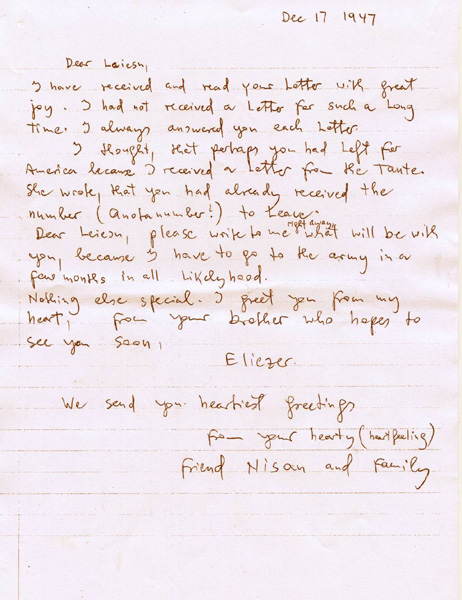 Dec 17 1947
Dear Leiesn,
I have received and read your Letter with great
joy. I had not received a Letter for such a Long
time. I always answered you each Letter
I thought, that perhaps you had Left for
America because I received a Letter from the Tante.
She wrote, that you had already received the
number (Quota number!) to Leave.
Dear Leiesn, please write to me right away what will be with
you, because I have to go to the army in a
few months in all Likelyhood.
Nothing else special. I greet you from my
heart, from your brother who hopes to
see you soon,
Eliezer.
We send you heartiest greetings
from your hearty (heartfeeling)
friend Nisan and Family